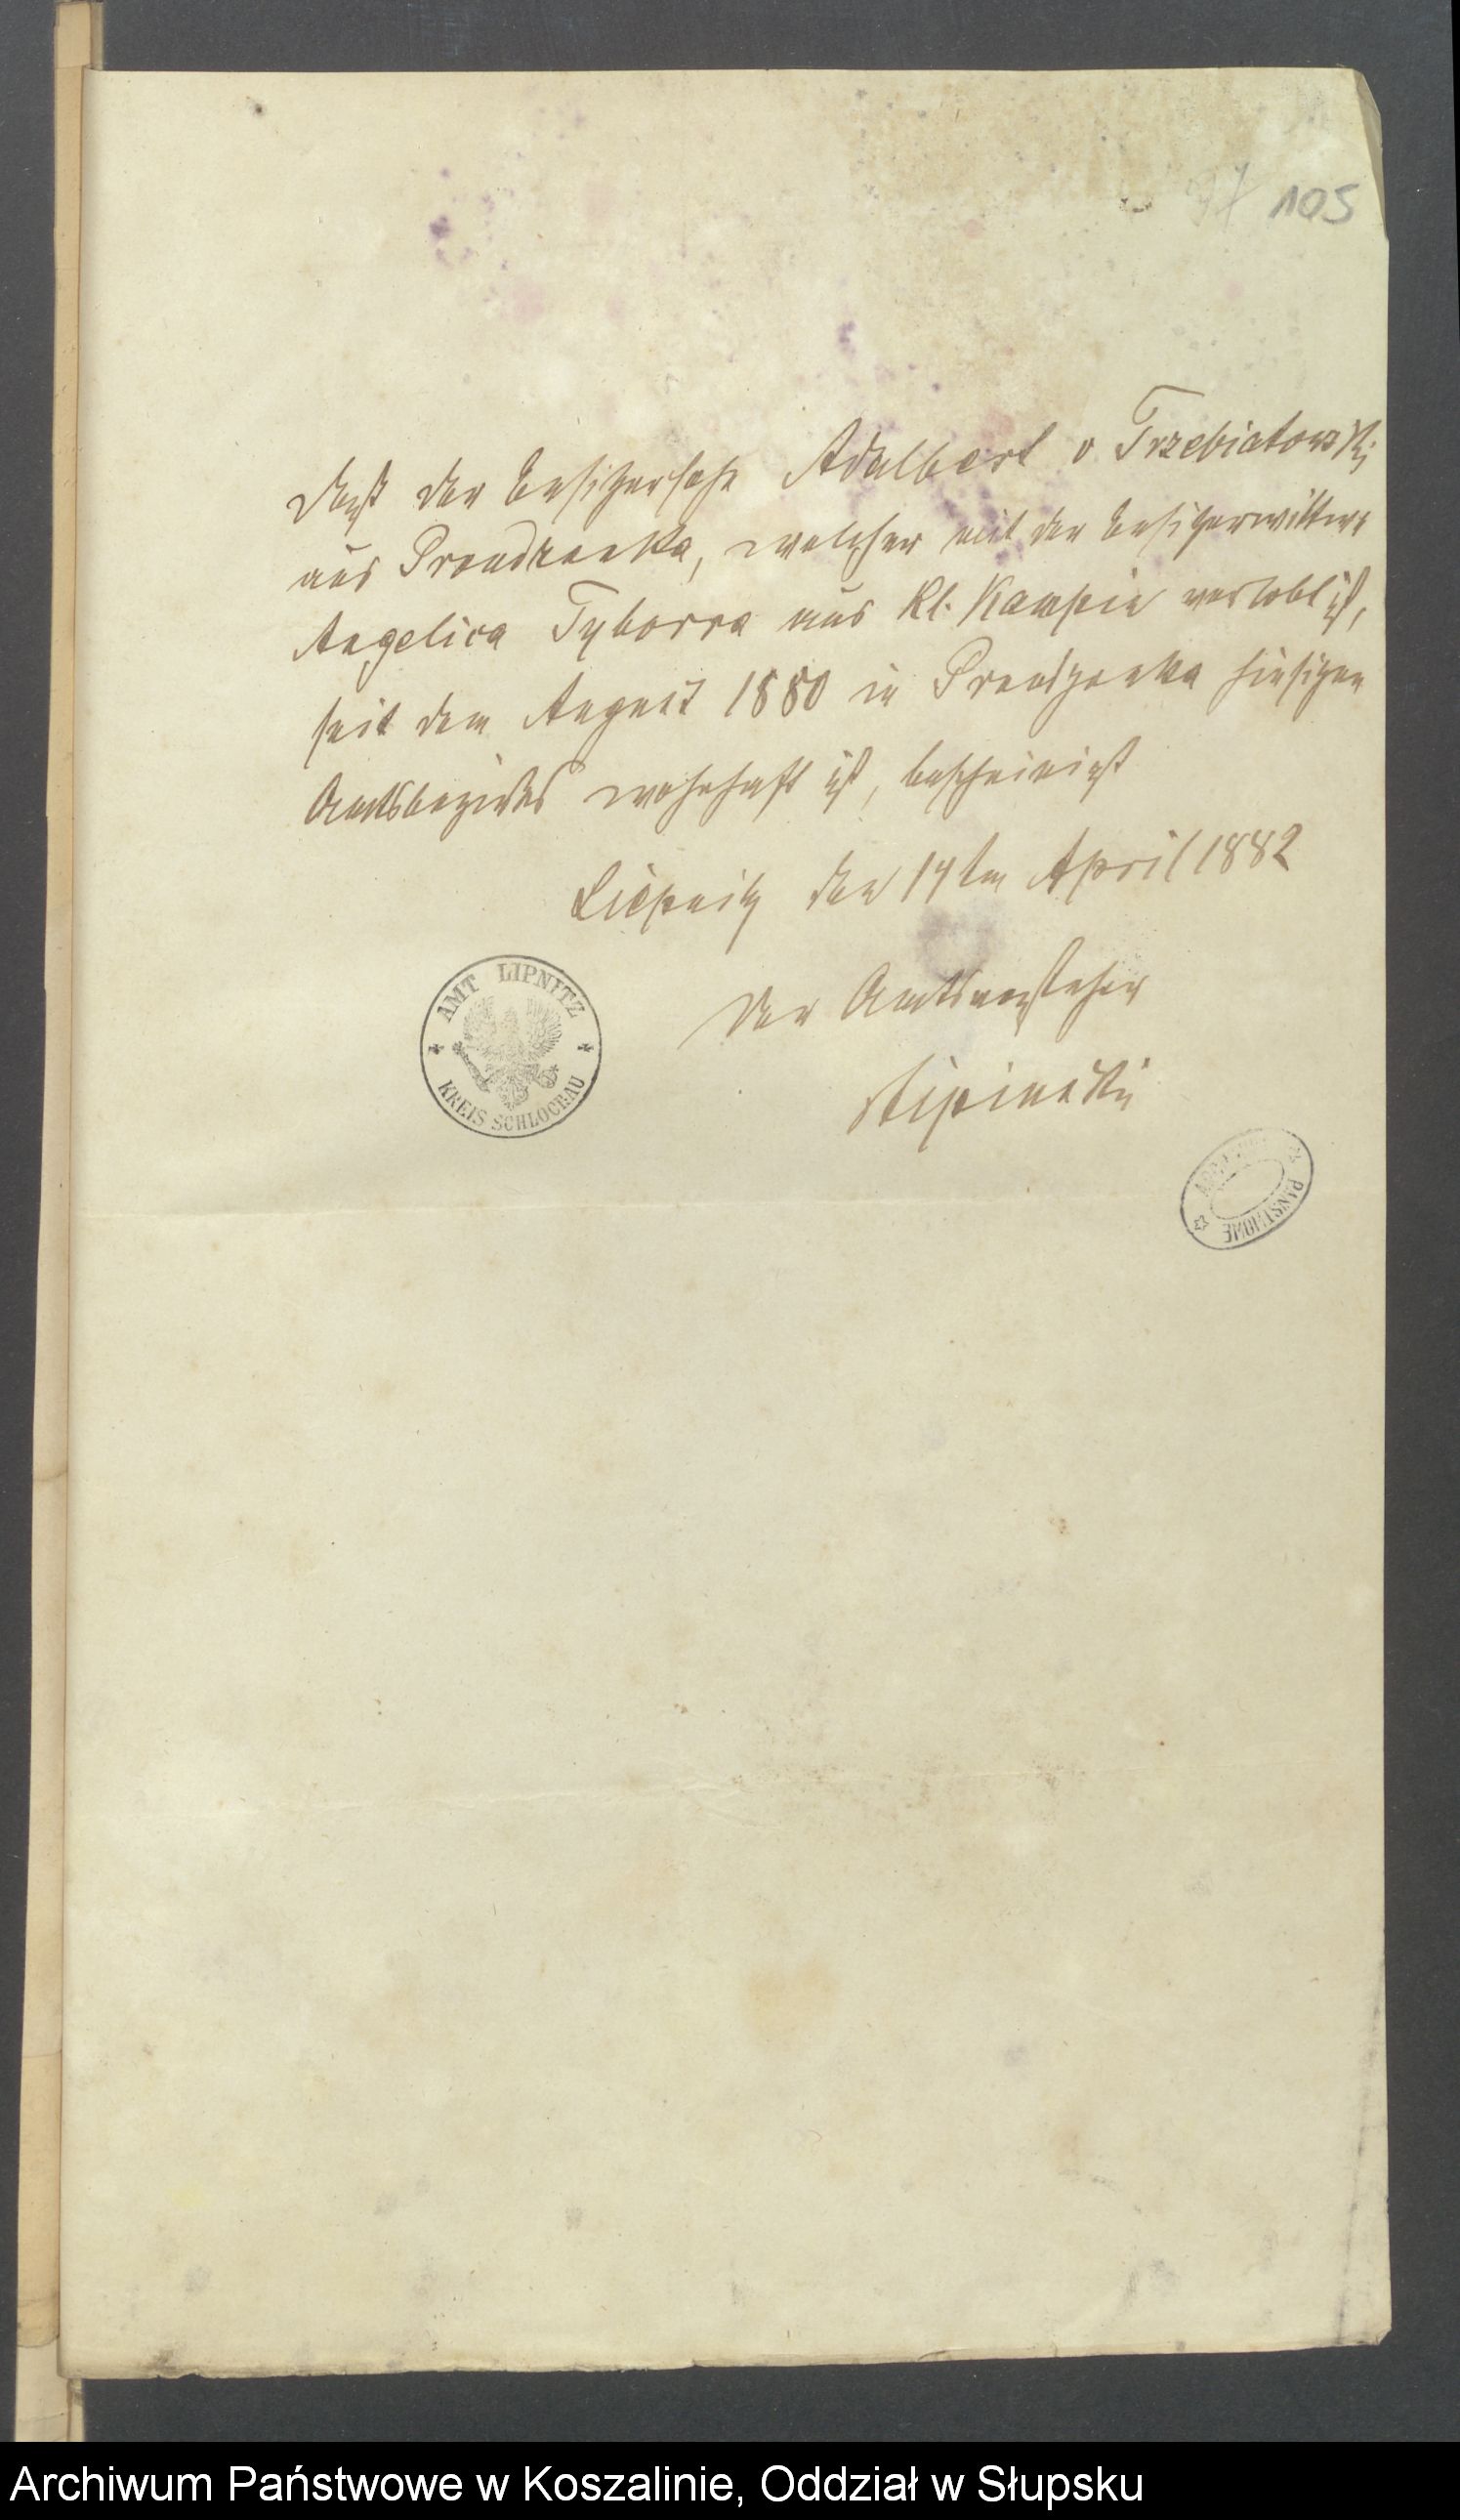 97 105
Daß der Besitzersohn Adalbert v Trzebiatowski
aus Prondzonka, welcher mit der Besitzerwittwe
Angelica Tyborra aus Kl. Konspin verlobt ist,
seit dem August 1880 in Prondzonka hiesigen
Amtsbezirks wohnhaft ist, bescheinigt
Liepnitz den 14ten April 1882
Der Amtsvorsteher
AMT LIPNITZ
KREIS SCHLOCHAU
PAŃSTWOWE
Archiwum Państwowe w Koszalinie, Oddział w Słupsku